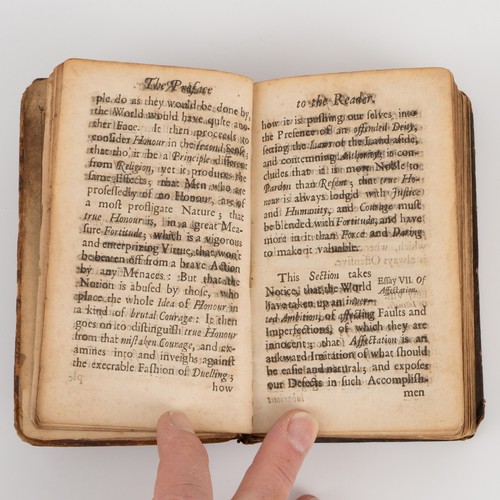 The Preface
ple do as they would be done by,
the World would have quite ano-
ther Face. It then proceeds to
consider Honour in the second Sense,
that tho' it be a Principle differet
from Religion, yet it produces the
same Effects; that Men who are
professedly of no Honour, are of
a most profligate Nature; that
true Honour is, in a great Mea-
sure Fortitude, which is a vigorous
and enterprizing Virtue, that won't
be beaten off from a brave Action
by any Menaces: But that the
Notion is abused by those, who
place the whole Idea of Honour in
a kind of brutal Courage: It then
goes on to distinguish true Honour
from that mistaken Courage, and ex-
amines into and inveighs against
the execrable Fashion of Duelling;
how
to the Reader.
how it is pushing our selves into
the Presence of an offended Deity,
setting the Laws of the Land aside,
and contemning Authority; it con-
cludes that it is more Noble to
Pardon than Resent; that true Ho-
nour is always lodg'd with Justice
and Humanity, and Courage must
be blended with Fortitude, and have
more in it than Force and Daring
to make it valuable.
This Section takes
Notice, that the World
have taken up an inver-
ted Ambition, of affecting Faults and
Imperfections, of which they are
innocent; that Affectation is an
aukward Imitation of what should
be easie and natural; and exposes
our Defects in such Accomplish-
men
Essay VII. Of
Affectation.